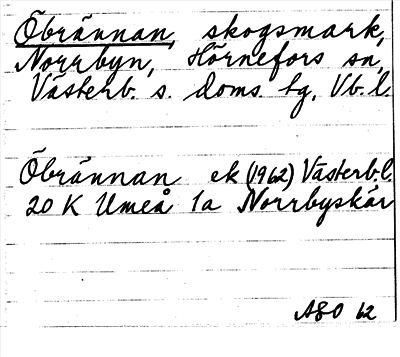 Öbrännan, skogsmark,
Norrbyn, Hörnefors sn,
Västerb. s. doms. tg, Vb. l.
Öbrännan ek (1962) Västerb. l.
20 K Umeå 1a Norrbyskär
ASO 62